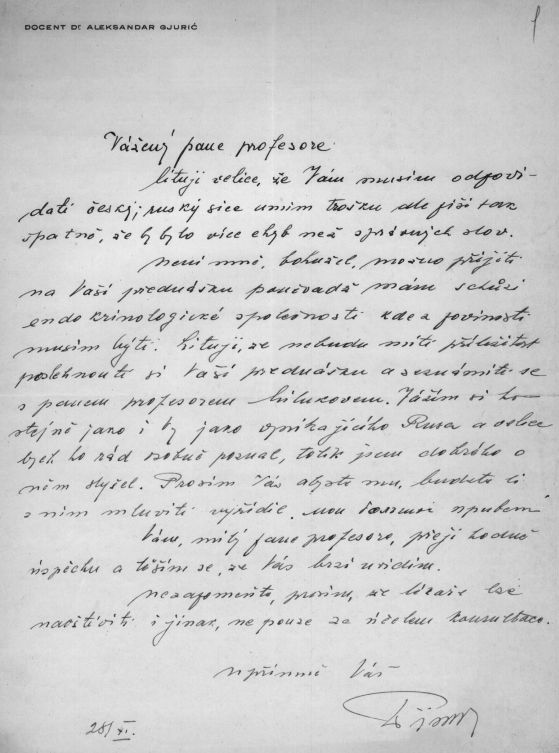 DOCENT Dr. ALEKSANDAR GJURIĆ
Vážený pane profesore
lituji velice, že Vám musím odpoví-
dati česky; ruský sice umím trošku ale píši tak
špatně, že by bylo více chyb než správných slov.
není mně, bohužel, možno přijíti
na Vaši přednášku poněvadž mám schůzi
endokrinologické společnosti kde z povinosti
musím býti. Lituji, že nebudu míti příležitost
poslechnouti si Vaši přednášku a seznámiti se
s panem profesorem Milukovem. Vážím si ho
stejně jako i Vy jako vynikajícího Rusa a velice
bych ho rád osobně poznal, tolik jsem dobrého o
něm slyšel. Prosím Vás abyste mu, budete li
s ním mluviti vyřídil
Vám, milý pane profesore, přeji hodně
úspěchu a těším se, že Vás brzi uvidím.
nezapomeňte, prosím, že lékaře lze
navštíviti i jinak, ne pouze za účelem konsultace.
upřímně Váš
28/XI.